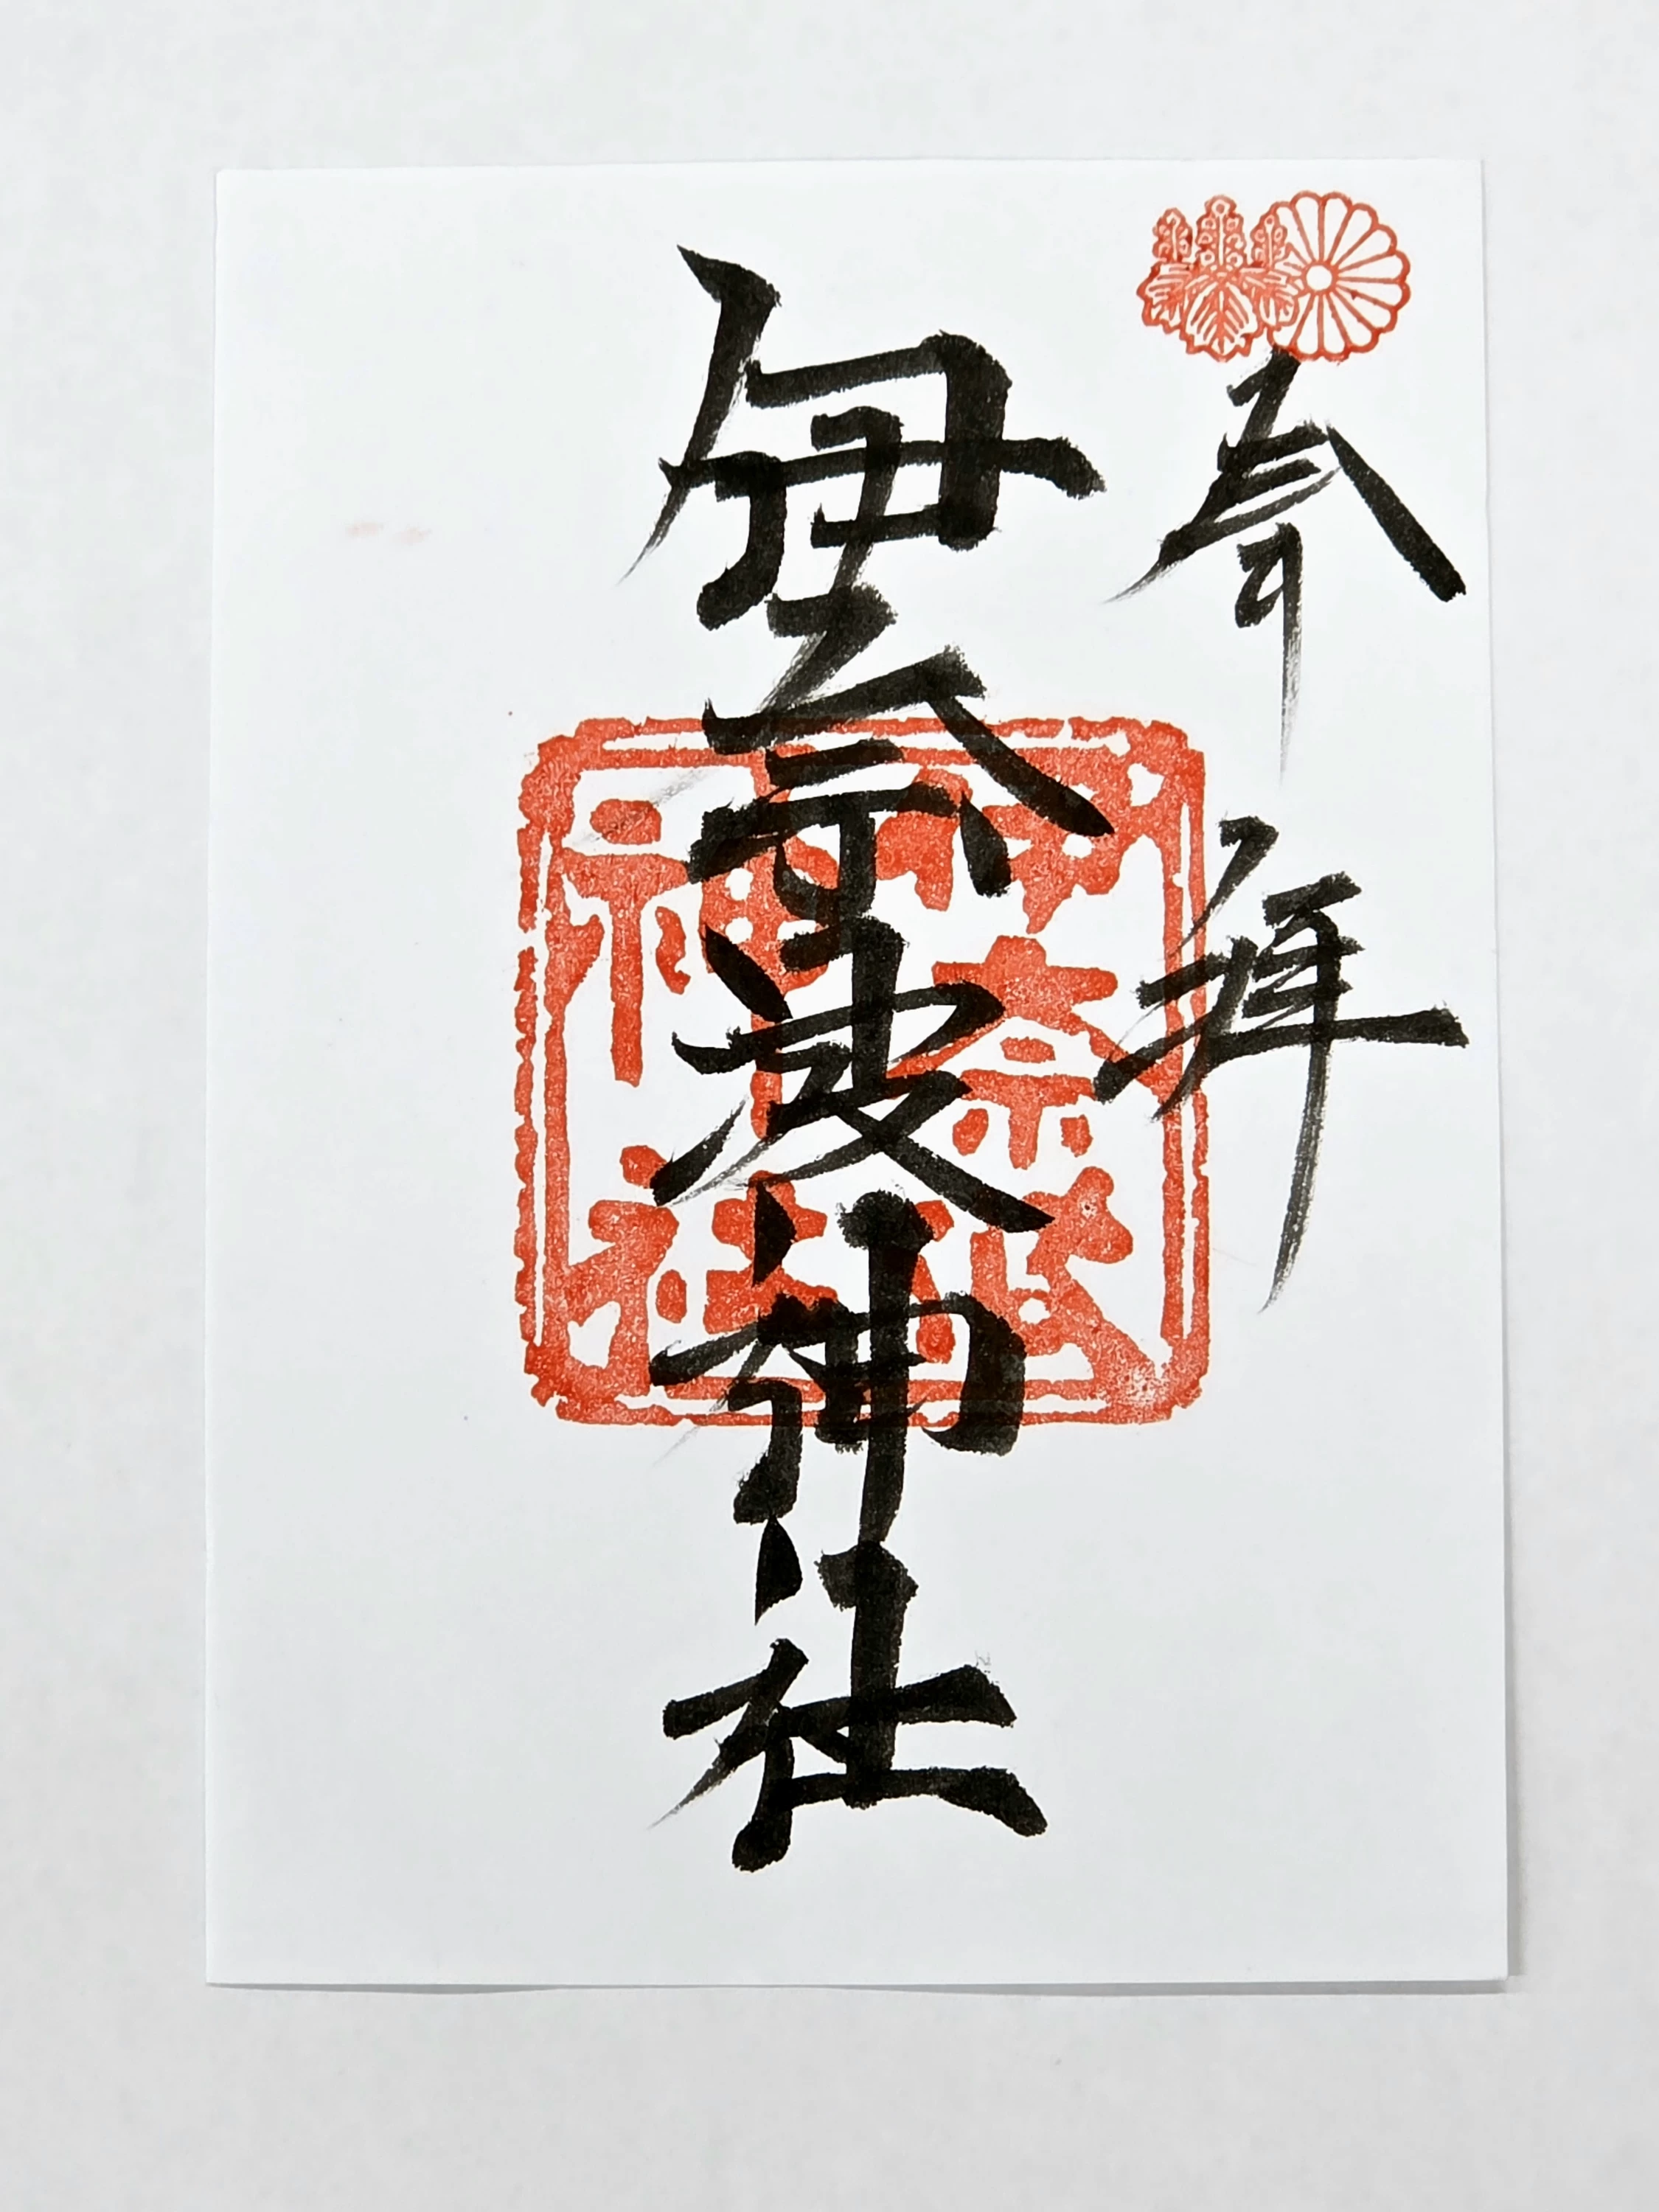 奉拝
伊奈波神社
伊奈波
神社